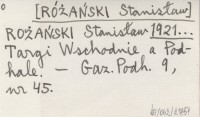 [RÓŻAŃSKI Stanisław]
ROŻAŃSKI Stanisław 1921...
Targi Wschodnie a Pod-
hale. — Gaz. Podh. 9,
nr 45.